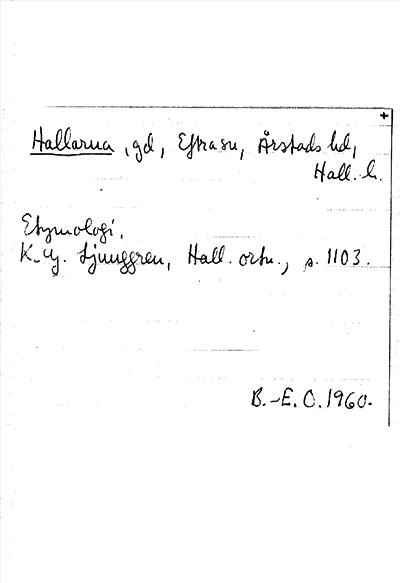 Hallarna, gd, Eftra sn, Årstads hd,
Hall. l.
Etymologi.
K.-G. Ljunggren, Hall. ortn., s. 1103.
B.-E. O. 1960.